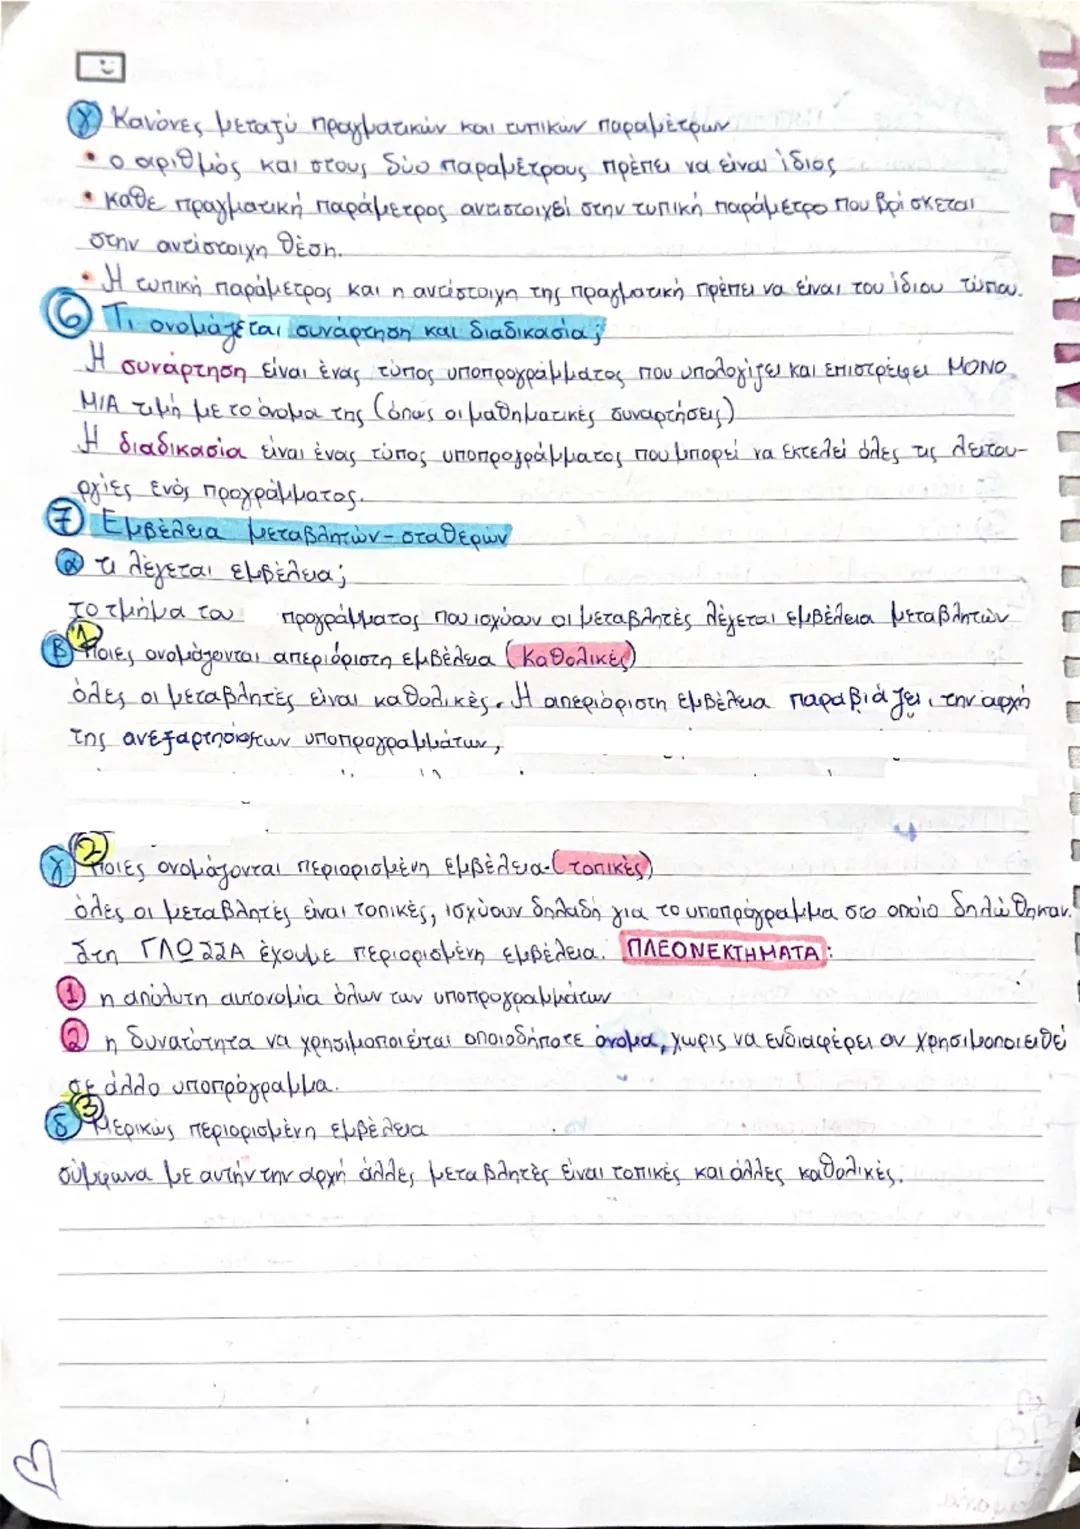 γ Κανόνες μεταξύ πραγματικών και τυπικών παραμέτρων
• ο αριθμός και στους δύο παραμέτρους πρέπει να είναι ίδιος
• καθε πραγματική παράμετρος αντιστοιχεί στην τυπική παράμετρο που βρίσκεται
στην αντίστοιχη θέση.
• Η τυπική παράμετρος και η αντίστοιχη της πραγματική πρέπει να είναι του ίδιου τύπου.
6 Τι ονομάζεται συνάρτηση και διαδικασία;
Η συνάρτηση είναι ένας τύπος υποπρογράμματος που υπολογίζει και επιστρέφει ΜΟΝΟ
ΜΙΑ τιμή με το όνομα της (όπως οι μαθηματικές συναρτήσεις)
Η διαδικασία είναι ένας τύπος υποπρογράμματος που μπορεί να εκτελεί όλες τις λειτου-
ργίες ενός προγράμματος.
7 Εμβέλεια μεταβλητών-σταθερών
α τι λέγεται εμβέλεια;
το τμήμα του προγράμματος που ισχύουν οι μεταβλητές λέγεται εμβέλεια μεταβλητών
β 1 ποιες ονομάζονται απεριόριστη εμβέλεια (καθολικές)
όλες οι μεταβλητές είναι καθολικές. Η απεριόριστη εμβέλεια παραβιάζει την αρχή
της υποπρογραμμάτων,
γ 2 ποιες ονομάζονται περιορισμένη εμβέλεια-(τοπικές)
όλες οι μεταβλητές είναι τοπικές, ισχύουν δηλαδή για το υποπρόγραμμα στο οποίο δηλώθηκαν.
Στη ΓΛΩΣΣΑ έχουμε περιορισμένη εμβέλεια. ΠΛΕΟΝΕΚΤΗΜΑΤΑ:
1 η απόλυτη αυτονομία όλων των υποπρογραμμάτων
2 η δυνατότητα να χρησιμοποιέιται οποιοδήποτε όνομα, χωρις να ενδιαφέρει αν χρησιμοποιείθεί
σε άλλο υποπρόγραμμα.
δ 3 Μερικώς περιορισμένη εμβέλεια
σύμφωνα με αυτήν την αρχή άλλες μεταβλητές είναι τοπικές και άλλες καθολικές.